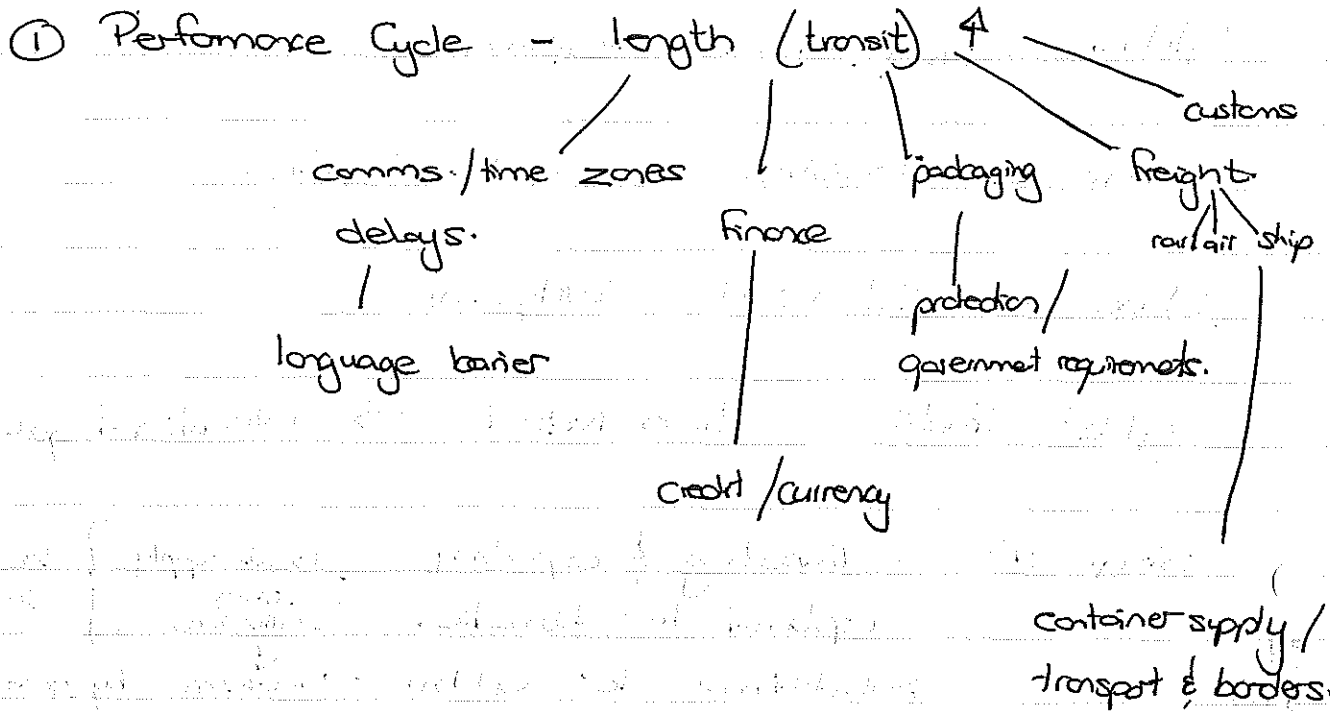 ① Performance Cycle - length (transit) ↑
customs
comms./time zones
packaging
freight.
delays.
finance
rail/air ship
protection/
language barrier
government requirements.
credit/currency
container supply/
transport & borders.